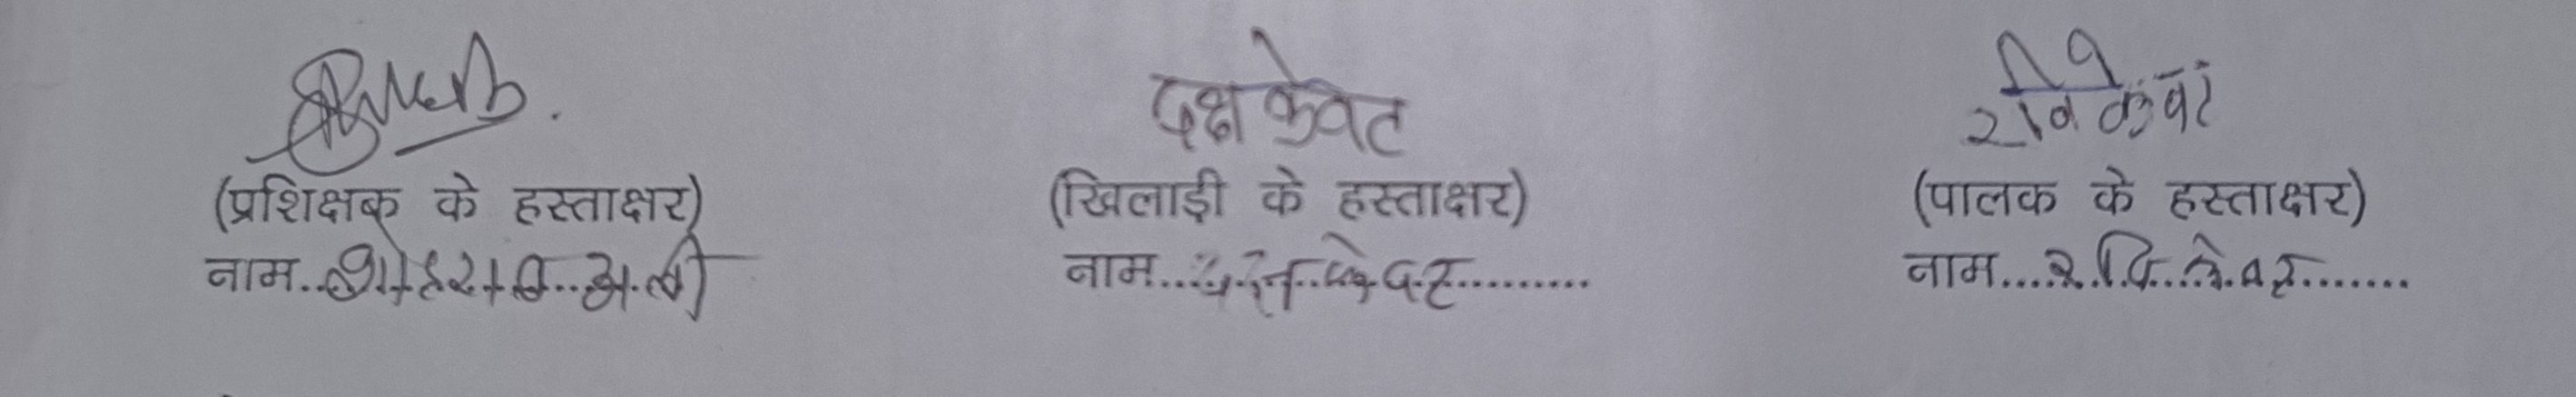 दक्ष केवट रवि केवट
(प्रशिक्षक के हस्ताक्षर) (खिलाड़ी के हस्ताक्षर) (पालक के हस्ताक्षर)
नाम.. अली नाम... केवट......... नाम...रवि केवट.......